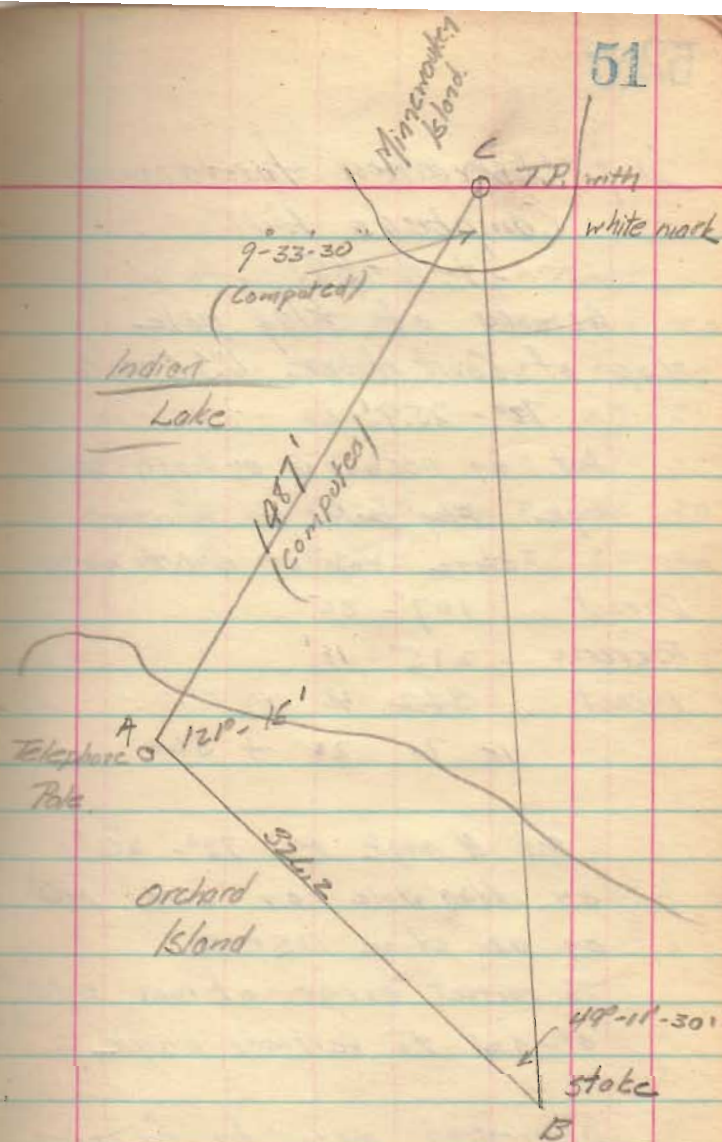 51
Minnewauken
Island.
C
T.P. with
white mark
9°-33'-30"
(Computed)
Indian
Lake
1487'
(computed)
A
121°-16'
Telephone
Pole.
326.2
Orchard
Island
49°-11'-30'
stake
B